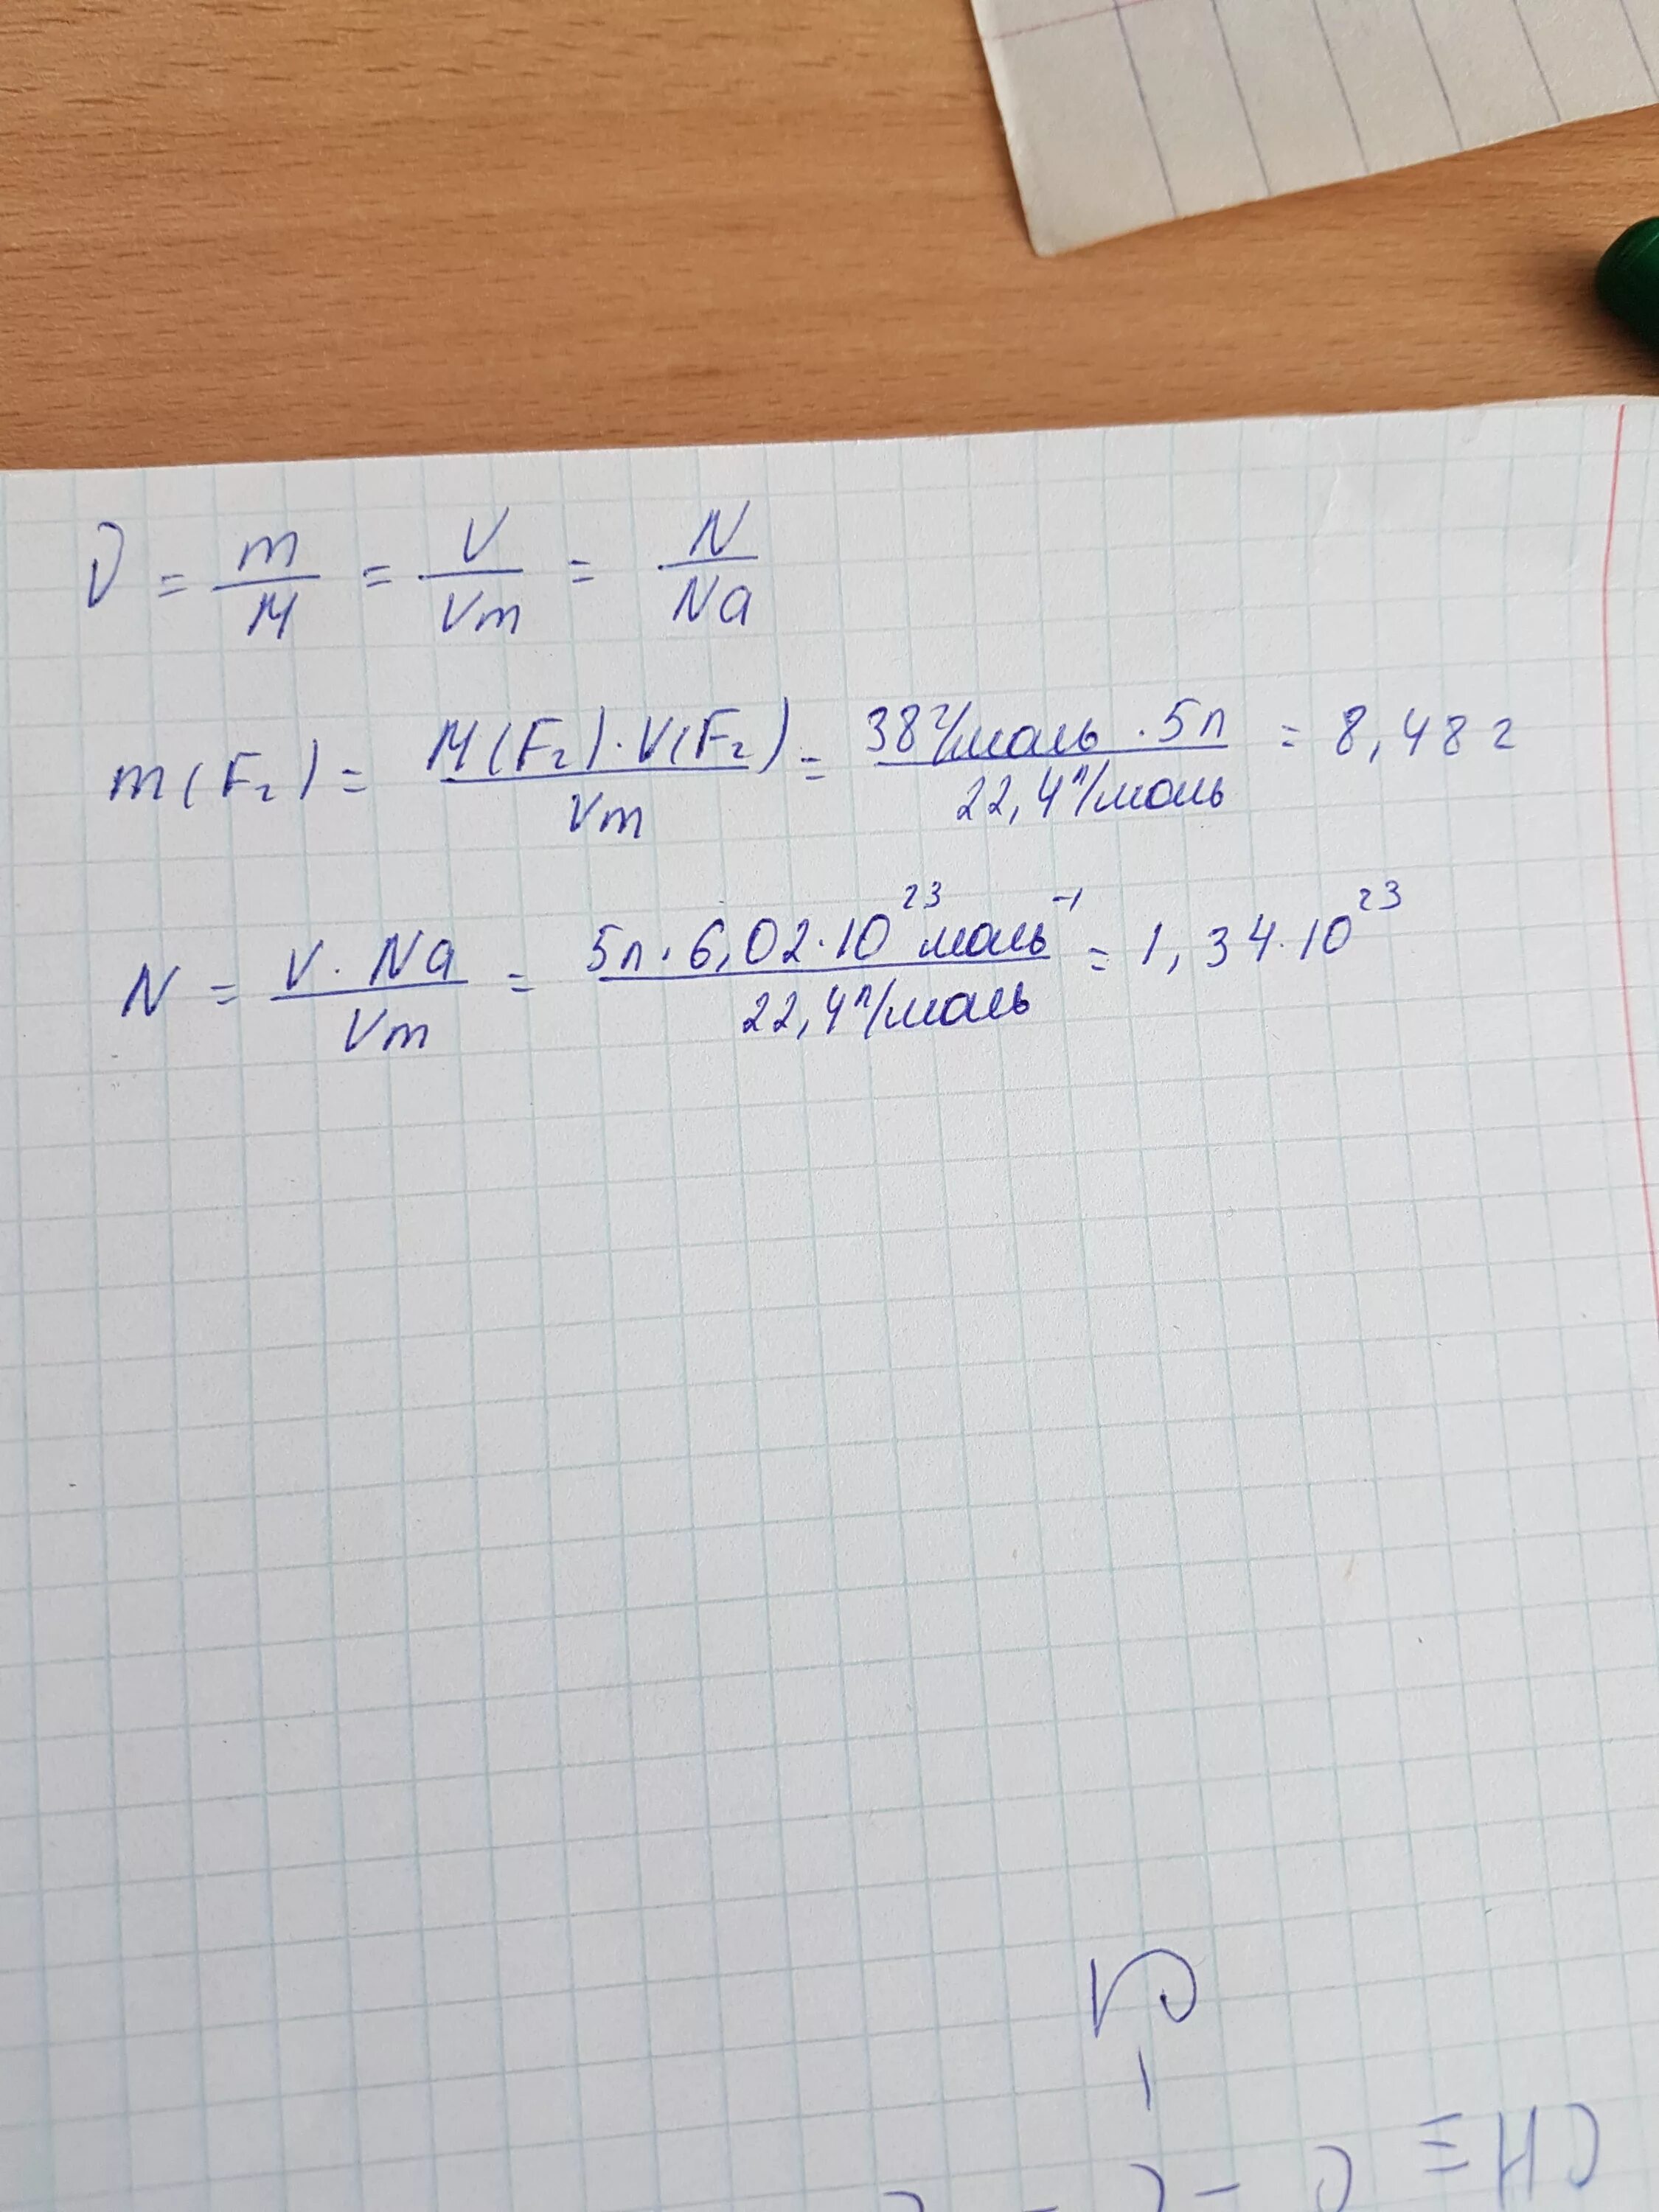 ν = m/M = V/Vm = N/Na
m(F₂) = M(F₂)·V(F₂)/Vm = 38 г/моль · 5л / 22,4 л/моль = 8,48 г
N = V · Na/Vm = 5л · 6,02·10²³ моль⁻¹ / 22,4 л/моль = 1,34·10²³
Cl
CH≡C–C–